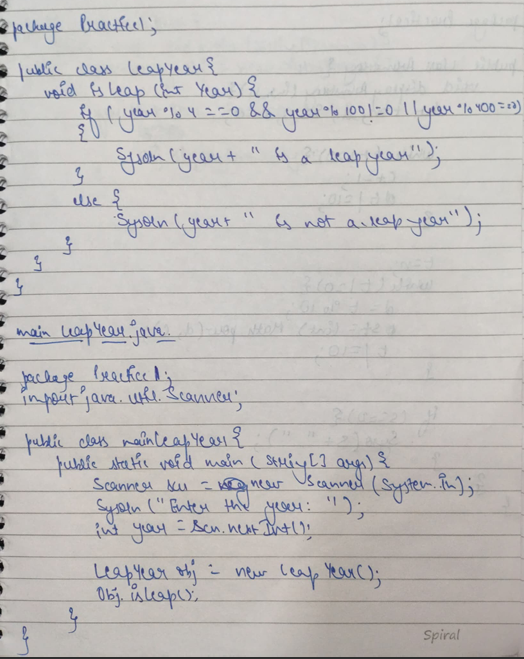 package Practice1;
public class LeapYear{
void isLeap (int Year) {
if ( year % 4 ==0 && year % 100!=0 || year % 400==0)
{
Sysoln (year + " is a leap year");
}
else {
Sysoln (year+ " is not a leap year");
}
}
}
main LeapYear.java.
package Practice1;
import java.util.Scanner;
public class mainLeapYear{
public static void main (String[] args) {
Scanner scn = new Scanner (System.in);
Sysoln ("Enter the year: ");
int year = Scn.nextInt();
LeapYear obj = new Leap Year();
Obj.isLeap();
}
}
Spiral